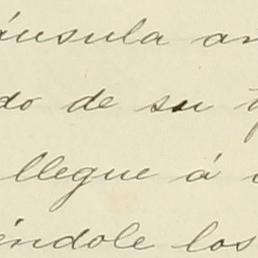 áusula an
do de su
llegue á
éndole los